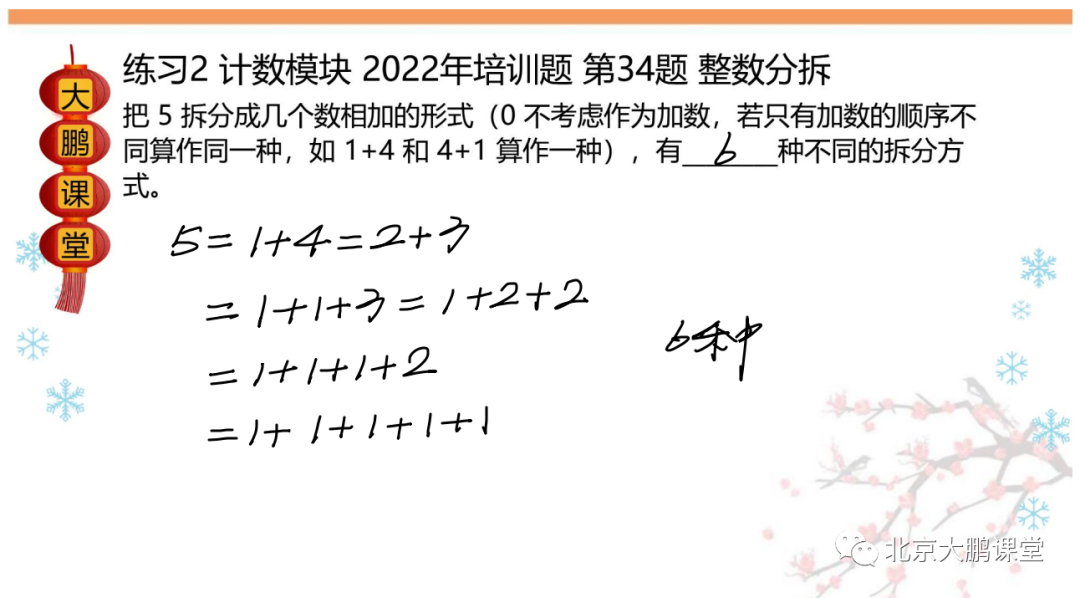 大鹏课堂
练习2 计数模块 2022年培训题 第34题 整数分拆
把 5 拆分成几个数相加的形式（0 不考虑作为加数，若只有加数的顺序不
同算作同一种，如 1+4 和 4+1 算作一种），有___6___种不同的拆分方
式。
5=1+4=2+3
=1+1+3=1+2+2
=1+1+1+2
=1+1+1+1+1
6种
北京大鹏课堂